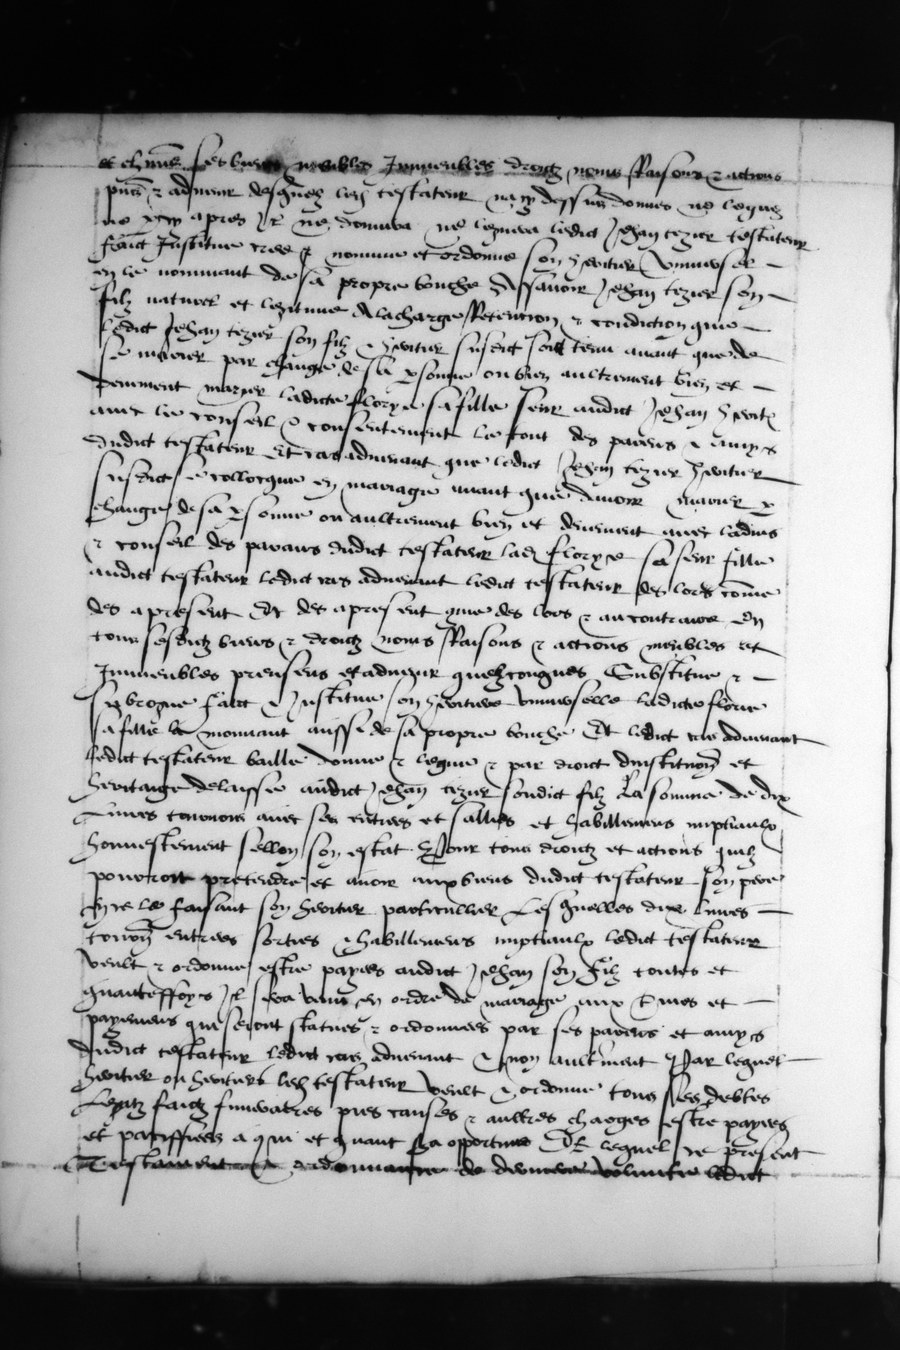 ses biens meubles Immeubles droictz noms Raisons & actions
& advenir desquelz led testateur na cy dessus donnes ne legues
ne cy apres Il ne donnera ne leguera ledict Jehan tezier testateur
faict Institue cree & nomme et ordonne son heritier Universel
en le nommant de sa propre bouche Assavoir Jehan tezier son
filz naturel et legitime A la charge Retention & condiction que
ledict Jehan tezier son filz & heritier susdict soit tenu avant que de
se marier par change de sa personne ou bien aultrement bien et
deuement marier ladicte florye sa fille seur audict Jehan herit
avec le conseil & consentement le tout des parens & amys
dudict testateur Et cas advenant que ledict Jehan tezier heritier
susdict se collocque en mariage avant que davoir marier p
change de sa personne ou aultrement bien et deuement avec ladvis
& conseil des parans dudict testateur lad florye sa seur fille
audict testateur ledict cas advenant ledict testateur des lors come
des apresent Et des apresent que des lors & au contraire En
tous sesdictz biens & droictz noms Raisons & actions meubles et
Immeubles presens et advenir quelzconques Substitue &
subrogue faict & Institue son heritiere universelle ladicte florie
sa fille la nommant aussi de sa propre bouche Et ledict cas advenant
ledict testateur baille donne & legue & par droict dinstitution et
heritaige delaisse audict Jehan tezier sondict filz La somme de dix
Livres tournois avec ses entrees et sallies et habillemens nuptiaulx
honnestement sellon son estat Pour tous droictz et actions quilz
pourroit pretendre et avoir aux biens dudict testateur son pere
En ce le faisant son heritier particullier Lesquelles dix livres
tourn entrees sorties & habillemens nuptiaulx ledict testateur
veult & ordonne estre payees audict Jehan son filz toutes et
quanteffoys Il sera venu en ordre de mariage aux termes et
payemens que seront statues & ordonnees par ses parens et amys
dudict testateur ledict cas advenant & non aultment Par lequel
heritier ou heritiere led testateur veult & ordonne tous ses debtes
Legatz faictz funeratres pies causes & aultres charges estre payees
et pacuffiees a qui et quant sera opportune Et lequel ce present
Testament & ordonnance de derniere volunte ledict